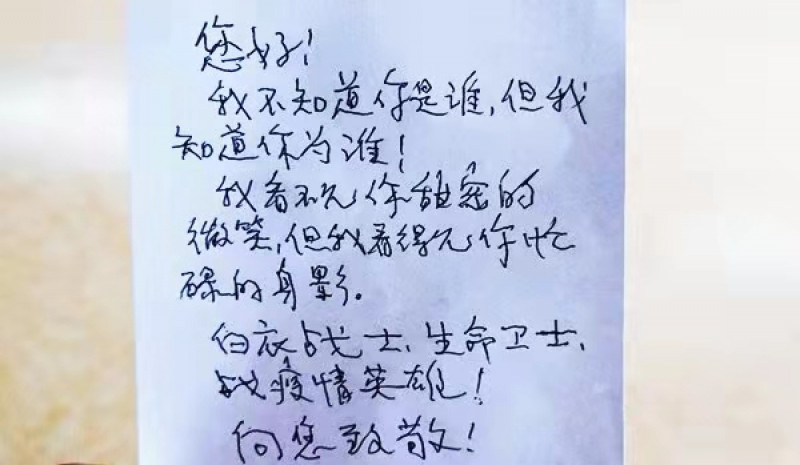 您好!
我不知道你是谁,但我
知道你为谁!
我看不见你甜蜜的
微笑,但我看得见你忙
碌的身影.
白衣战士、生命卫士、
战疫情英雄!
向您致敬!